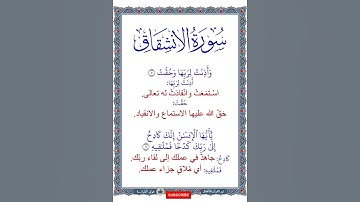 سُورَةُ الِانْشِقَاقِ
وَأَذِنَتْ لِرَبِّهَا وَحُقَّتْ ٢
أَذِنَتْ لِرَبِّهَا:
استَمَعَتْ وانقَادَتْ له تعالى.
حُقَّتْ:
حَقّ الله عليها الاستماع والانقياد.
يَٰٓأَيُّهَا ٱلْإِنسَٰنُ إِنَّكَ كَادِحٌ
إِلَىٰ رَبِّكَ كَدْحًا فَمُلَٰقِيهِ ٦
كَادِحٌ: جاهدٌ في عملك إلى لقاء ربّك.
فَمُلَٰقِيهِ: أي مُلاقٍ جزاء عملك.
SUBSCRIBE